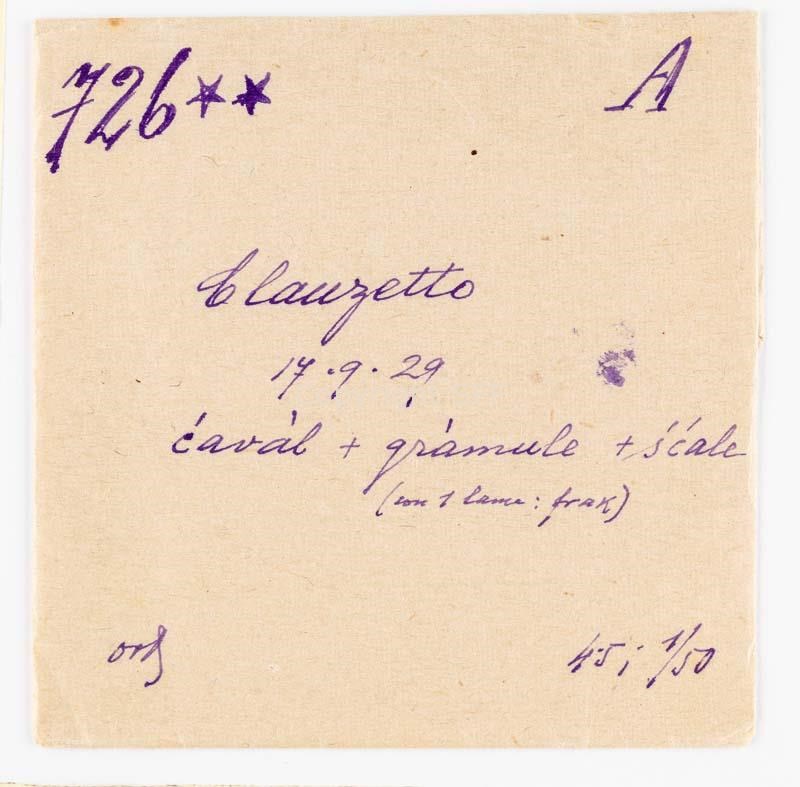 726** A
Clauzetto
17.9.29
ćavàl + gràmule + śćale
(con 1 lame: frak)
45; 1/50